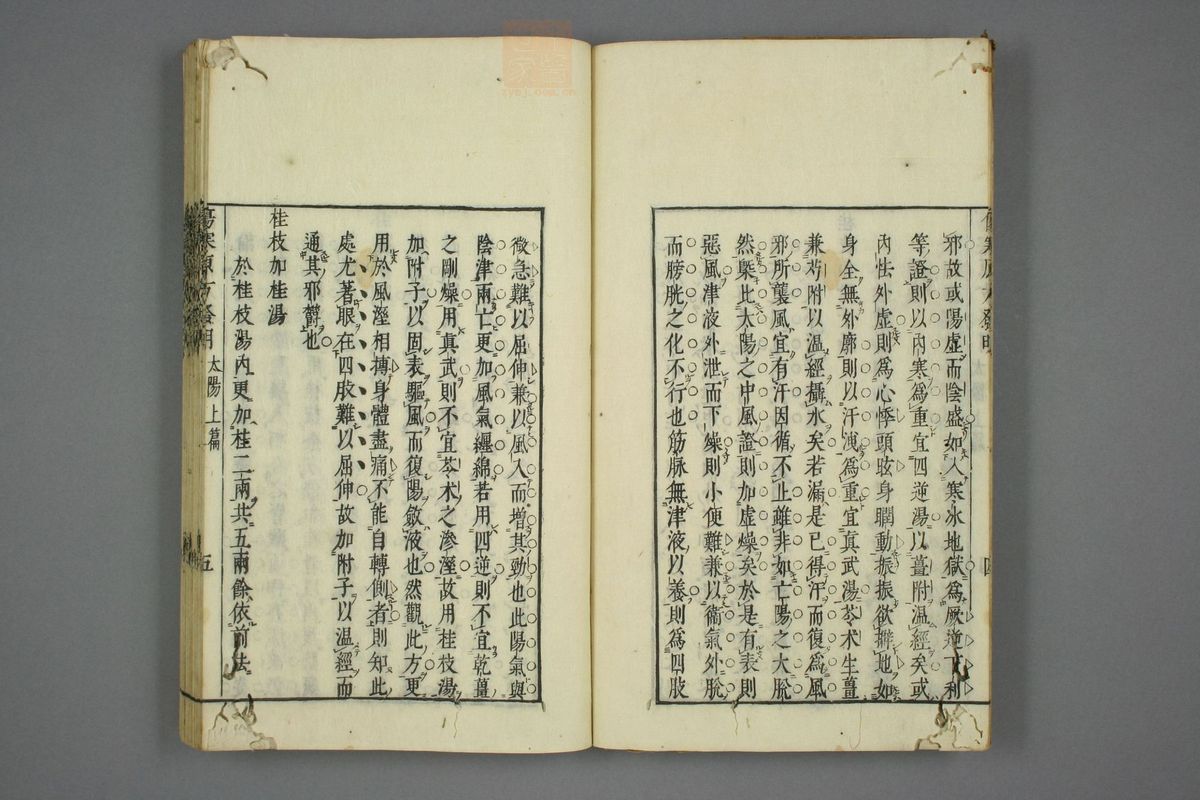 邪故或陽虛而陰盛如入寒冰地獄爲厥逆下利
等證則以内寒爲重宜四逆湯以薑附温經矣或
内怯外虛則爲心悸頭眩身瞤動振振欲擗地如
身全無外廓則以汗洩爲重宜真武湯苓术生薑
兼芍附以温經攝水矣若漏是已得汗而復爲風
邪所襲風宜有汗因循不止雖非如亡陽之大脫
然槩此太陽之中風證則加虛燥矣於是有表則
惡風津液外泄而下燥則小便難兼以衞氣外脫
而膀胱之化不行也筋脉無津液以養則爲四肢
微急難以屈伸兼以風入而增其勁也此陽氣與
陰津兩亡更加風氣纒綿若用四逆則不宜乾薑
之剛燥用真武則不宜苓术之滲溼故用桂枝湯
加附子以固表驅風而復陽斂液也然觀此方更
用於風溼相摶身體盡痛不能自轉側者則知此
處尤著眼在四肢難以屈伸故加附子以温經而
通其邪欝也
桂枝加桂湯
於桂枝湯内更加桂二兩共五兩餘依前法
傷寒原方發明
太陽上篇
五
zysj.com.cn